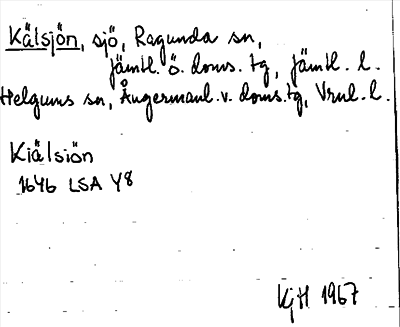 Kälsjön, sjö, Ragunda sn,
Jämtl. ö. doms. tg, Jämtl. l.
Helgums sn, Ångermanl. v. doms. tg, Vrnl. l.
Kiälsiön
1646 LSA Y8
KjH 1967